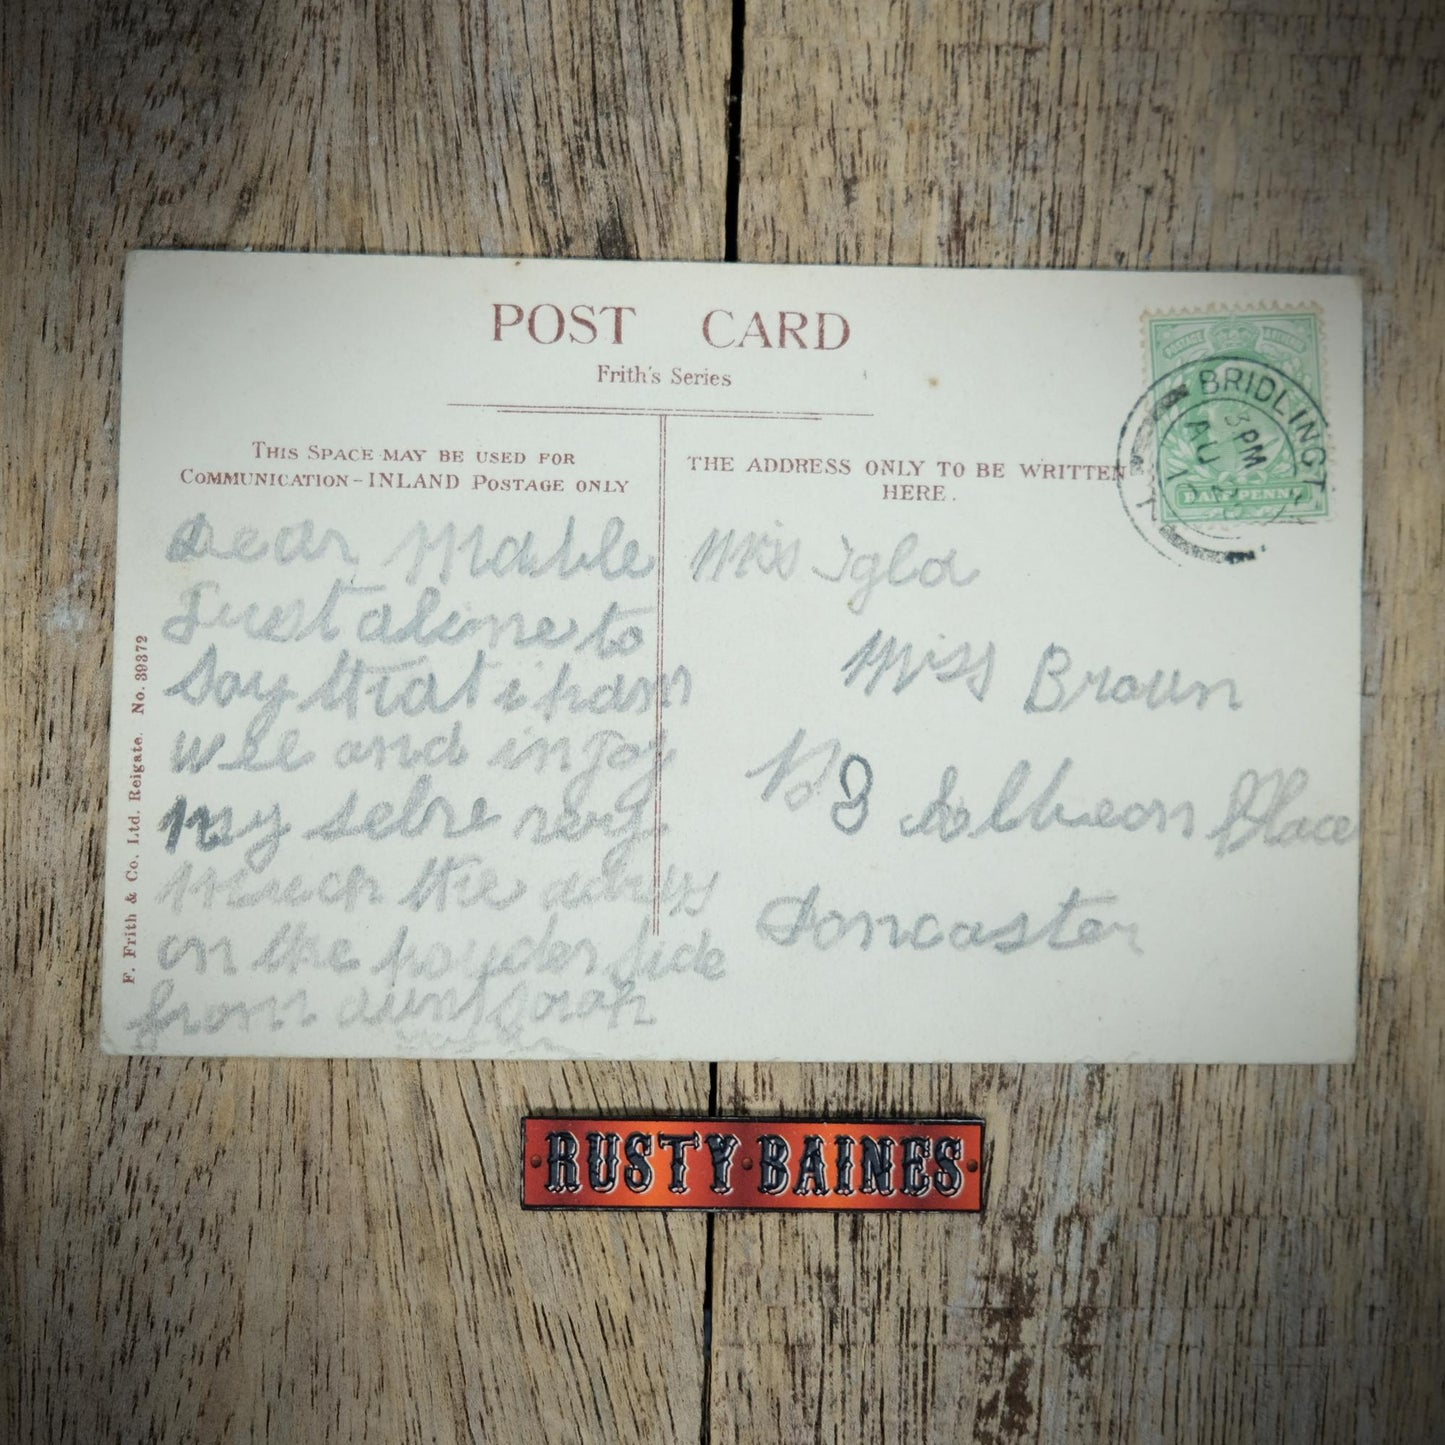 POST CARD
Frith's Series
THIS SPACE MAY BE USED FOR
COMMUNICATION-INLAND POSTAGE ONLY
THE ADDRESS ONLY TO BE WRITTEN
HERE.
POSTAGE
HALFPENNY
BRIDLINGT
3 PM
AU
F. Frith & Co. Ltd. Reigate. No. 39372
Dear Mable
Just a line to
Say that i
well and injoy
my selve very
much the
on the side
from aunt Sarah
Miss Brown
No 3 Place
Doncaster
RUSTY BAINES